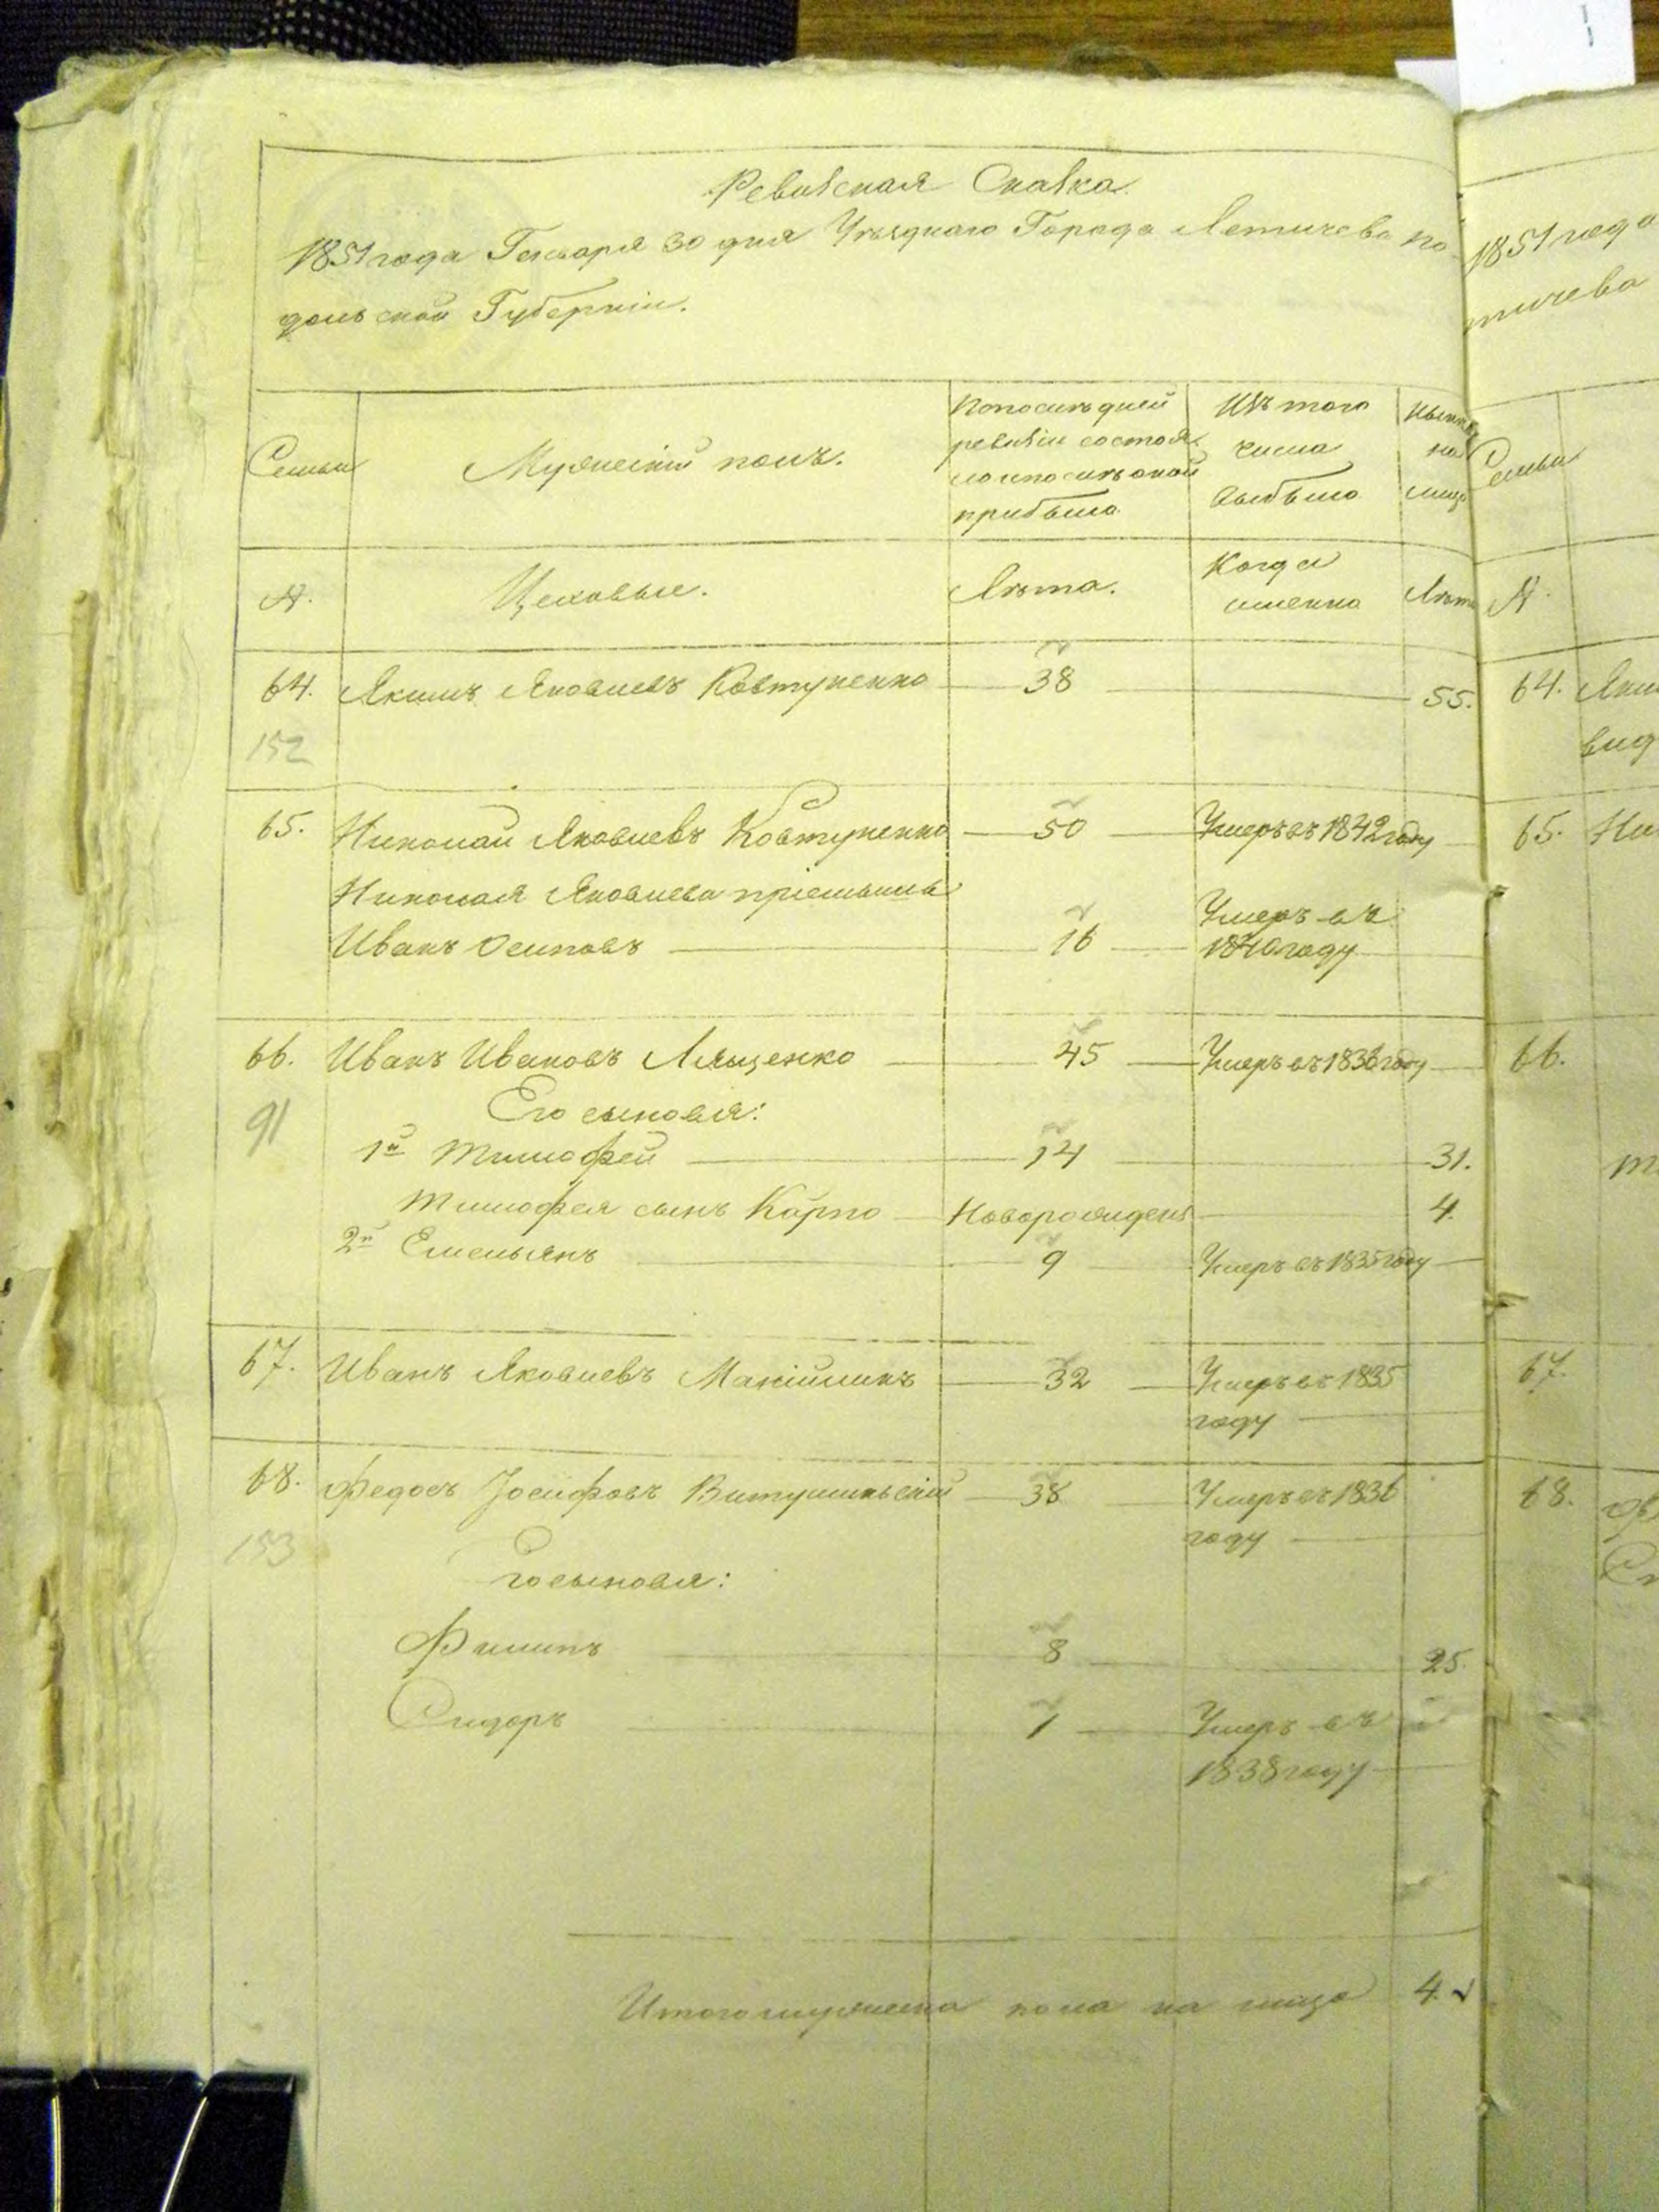 Ревизская Сказка.
1851 года Генваря 30 дня Уѣзднаго Города Летичева По-
дольской Губерніи.
Семьи
Мужескій полъ.
По послѣдней ревизіи состояло и послѣ оной прибыло
Изъ того числа выбыло
Нынѣ на лицо
№.
Цеховые.
Лѣта.
Когда именно
Лѣта
64. Якимъ Яковлевъ Ковтуненко 38 55.
152
65. Николай Яковлевъ Ковтуненко 50 Умеръ въ 1842 году
Николая Яковлева пріемышъ
Иванъ Осиповъ 16 Умеръ въ 1840 году
66. Иванъ Ивановъ Лященко 45 Умеръ въ 1836 году
91
Его сыновья:
1й Тимофей 14 31.
Тимофея сынъ Карпо Новорожденъ 4.
2й Емельянъ 9 Умеръ въ 1835 году
67. Иванъ Яковлевъ 32 Умеръ въ 1835 году
68. Федосъ Іосифовъ 38 Умеръ въ 1836 году
153
Его сыновья:
Филипъ 8 25.
Сидоръ 1 Умеръ въ 1838 году
Итого мужеска пола на лицо 4.
1851 года
тичева
Семьи
№.
64.
65.
66.
67.
68.